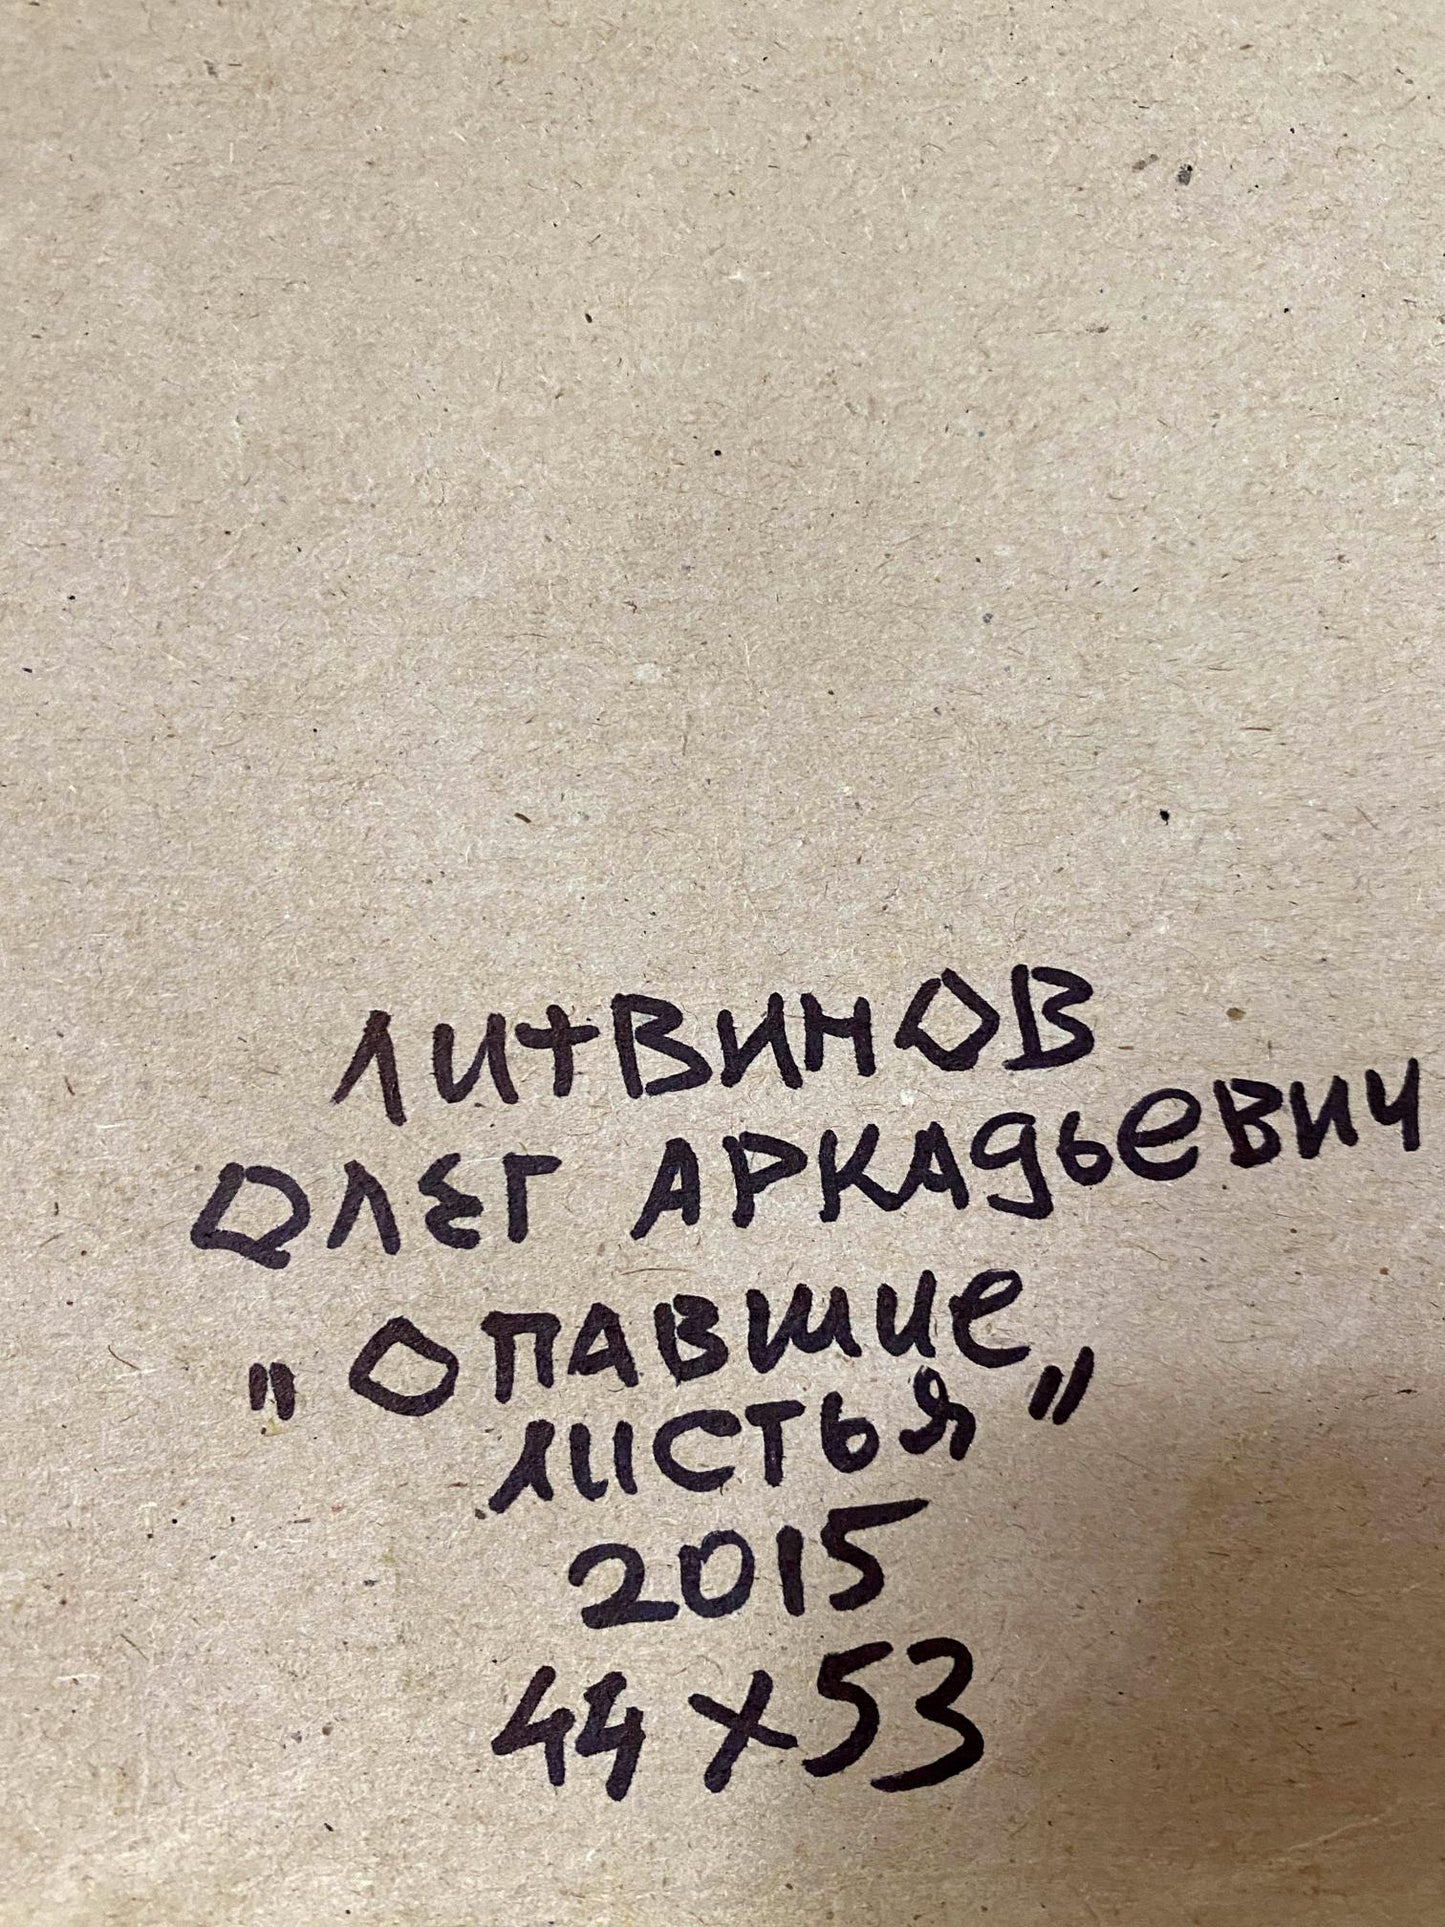 ЛИТВИНОВ
ОЛЕГ АРКАДЬЕВИЧ
"ОПАВШИЕ
ЛИСТЬЯ"
2015
44 х 53